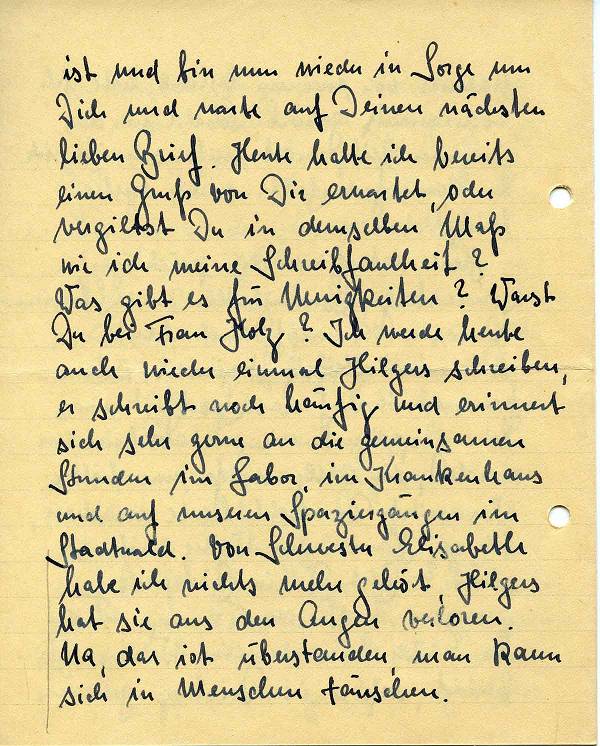 ist und bin nun wieder in Sorge um
Dich und warte auf Deinen nächsten
lieben Brief. Heute hatte ich bereits
einen Gruß von Dir erwartet, oder
vergiltst Du in demselben Maß
wie ich meine Schreibfaulheit?
Was gibt es für Neuigkeiten? Warst
Du bei Frau Holz? Ich werde heute
auch wieder einmal Hilgers schreiben,
er schreibt noch häufig und erinnert
sich sehr gerne an die gemeinsamen
Stunden im Labor, im Krankenhaus
und auf unseren Spaziergängen im
Stadtwald. Von Schwester Elisabeth
habe ich nichts mehr gehört, Hilgers
hat sie aus den Augen verloren.
Na, das ist überstanden, man kann
sich in Menschen täuschen.